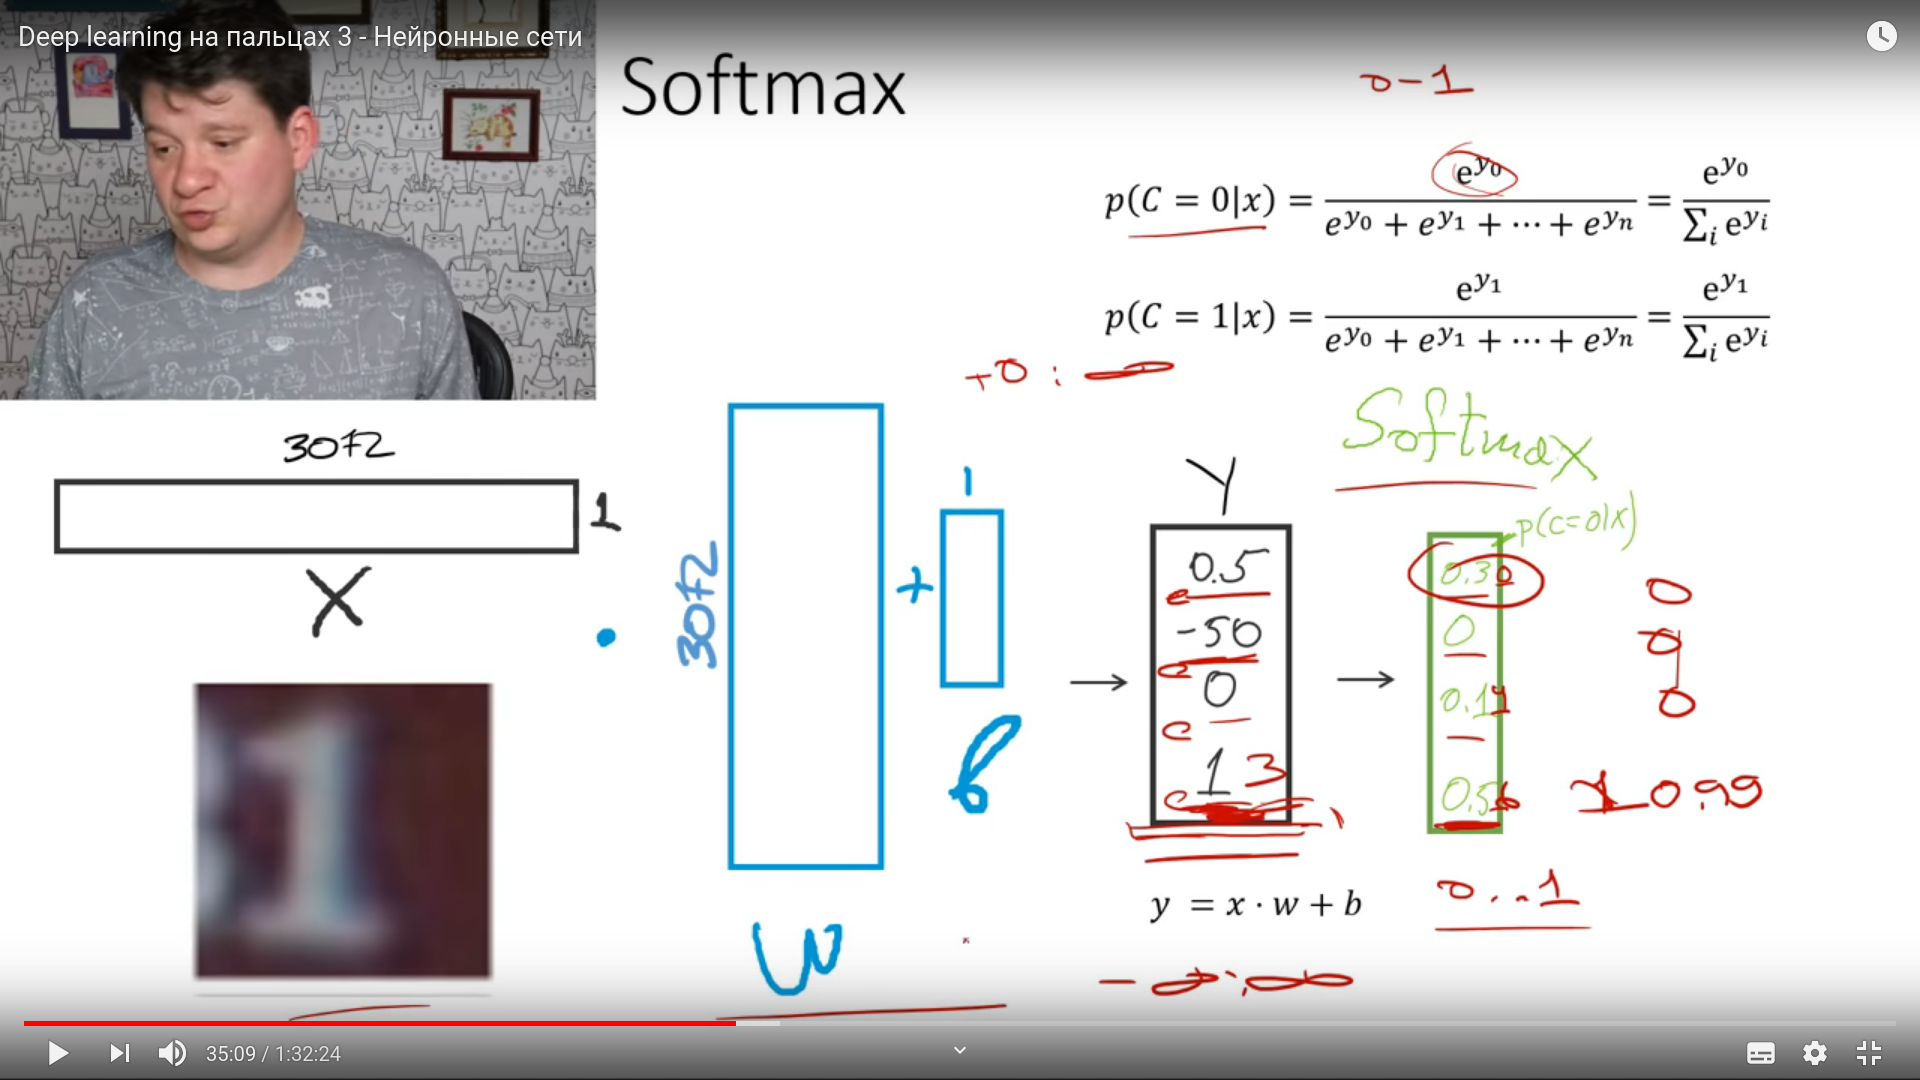 Deep learning на пальцах 3 - Нейронные сети
Softmax
0-1
p(C = 0|x) = e^{y_0} / (e^{y_0} + e^{y_1} + ⋯ + e^{y_n}) = e^{y_0} / ∑_i e^{y_i}
p(C = 1|x) = e^{y_1} / (e^{y_0} + e^{y_1} + ⋯ + e^{y_n}) = e^{y_1} / ∑_i e^{y_i}
+0 : ∞
Softmax
3072
1
X
3072
1
+
b
W
Y
p(c=0|x)
0.5
-50
0
1 3
0.3
0
0.1
0.5
0
0
0
1 0.99
0...1
y = x · w + b
- ∞ ; ∞
1
35:09 / 1:32:24